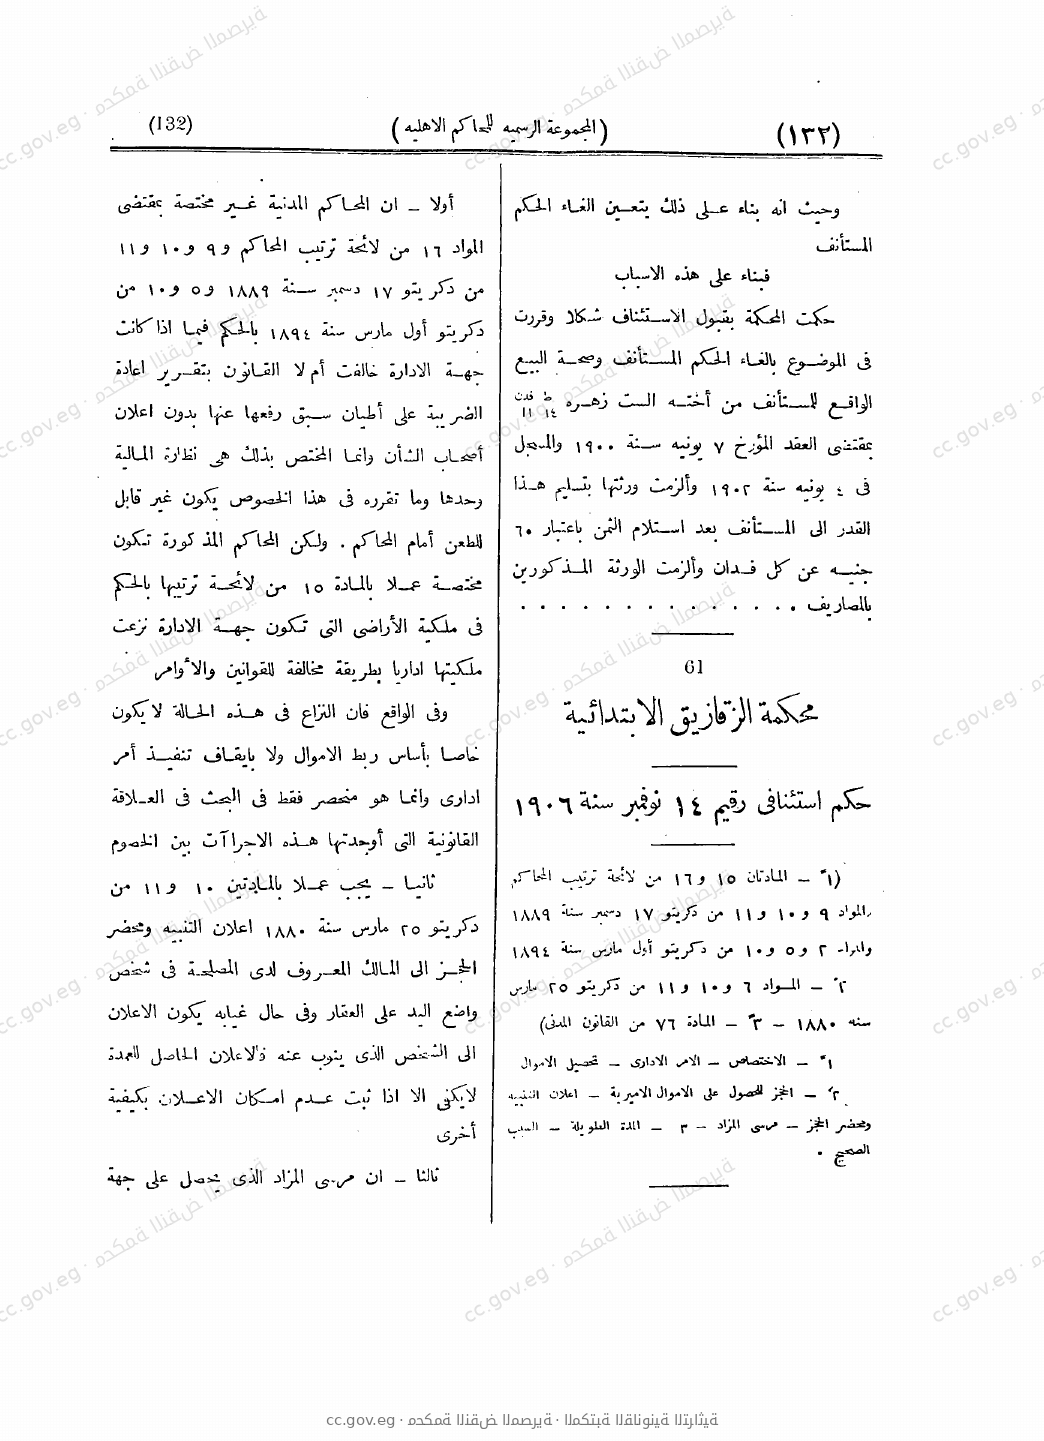 (١٣٢)
(المجموعة الرسميه للمحاكم الاهليه)
(132)
وحيث انه بناء على ذلك يتعين الغاء الحكم
المستأنف
فبناء على هذه الاسباب
حكمت المحكمة بقبول الاستئناف شكلا وقررت
فى الموضوع بالغاء الحكم المستأنف وصحة البيع
الواقع للمستأنف من أخته الست زهره ط ١٤ فدن ١١
بمقتضى العقد المؤرخ ٧ يونيه سنة ١٩٠٠ والمسجل
فى ٤ يونيه سنة ١٩٠٢ وألزمت ورثتها بتسليم هذا
القدر الى المستأنف بعد استلام الثمن باعتبار ٦٠
جنيه عن كل فدان وألزمت الورثة المذكورين
بالمصاريف . . . . . . . . . . . . . .
61
محكمة الزقازيق الابتدائية
حكم استئنافى رقيم ١٤ نوفمبر سنة ١٩٠٦
(١ً – المادتان ١٥ و١٦ من لائحة ترتيب المحاكم
والمواد ٩ و١٠ و١١ من دكريتو ١٧ دسمبر سنة ١٨٨٩
والمواد ٢ و٥ و١٠ من دكريتو أول مارس سنة ١٨٩٤
٢ً – المواد ٦ و١٠ و١١ من دكريتو ٢٥ مارس
سنه ١٨٨٠ – ٣ً – المادة ٧٦ من القانون المدنى)
١ً – الاختصاص – الامر الادارى – تحصيل الاموال
٢ً – الحجز للحصول على الاموال الاميرية – اعلان التنبيه
ومحضر الحجز – مرسى المزاد – ٣ – المدة الطويلة – السبب
الصحيح .
أولا – ان المحاكم المدنية غير مختصة بمقتضى
المواد ١٦ من لائحة ترتيب المحاكم و٩ و١٠ و١١
من دكريتو ١٧ دسمبر سنة ١٨٨٩ و٥ و١٠ من
دكريتو أول مارس سنة ١٨٩٤ بالحكم فيما اذا كانت
جهة الادارة خالفت أم لا القانون بتقرير اعادة
الضريبة على أطيان سبق رفعها عنها بدون اعلان
أصحاب الشأن وانما المختص بذلك هى نظارة المالية
وحدها وما تقرره فى هذا الخصوص يكون غير قابل
للطعن أمام المحاكم . ولكن المحاكم المذكورة تكون
مختصة عملا بالمادة ١٥ من لائحة ترتيبها بالحكم
فى ملكية الأراضى التى تكون جهة الادارة نزعت
ملكيتها اداريا بطريقة مخالفة للقوانين والأوامر
وفى الواقع فان النزاع فى هذه الحالة لا يكون
خاصا بأساس ربط الاموال ولا بايقاف تنفيذ أمر
ادارى وانما هو منحصر فقط فى البحث فى العلاقة
القانونية التى أوجدتها هذه الاجراآت بين الخصوم
ثانيا – يجب عملا بالمادتين ١٠ و١١ من
دكريتو ٢٥ مارس سنة ١٨٨٠ اعلان التنبيه ومحضر
الحجز الى المالك المعروف لدى المصلحة فى شخص
واضع اليد على العقار وفى حال غيابه يكون الاعلان
الى الشخص الذى ينوب عنه فالاعلان الحاصل للعمدة
لا يكفى الا اذا ثبت عدم امكان الاعلان بكيفية
أخرى
ثالثا – ان مرسى المزاد الذى يحصل على جهة
cc.gov.eg · محكمة النقض المصرية · المكتبة القانونية التراثية